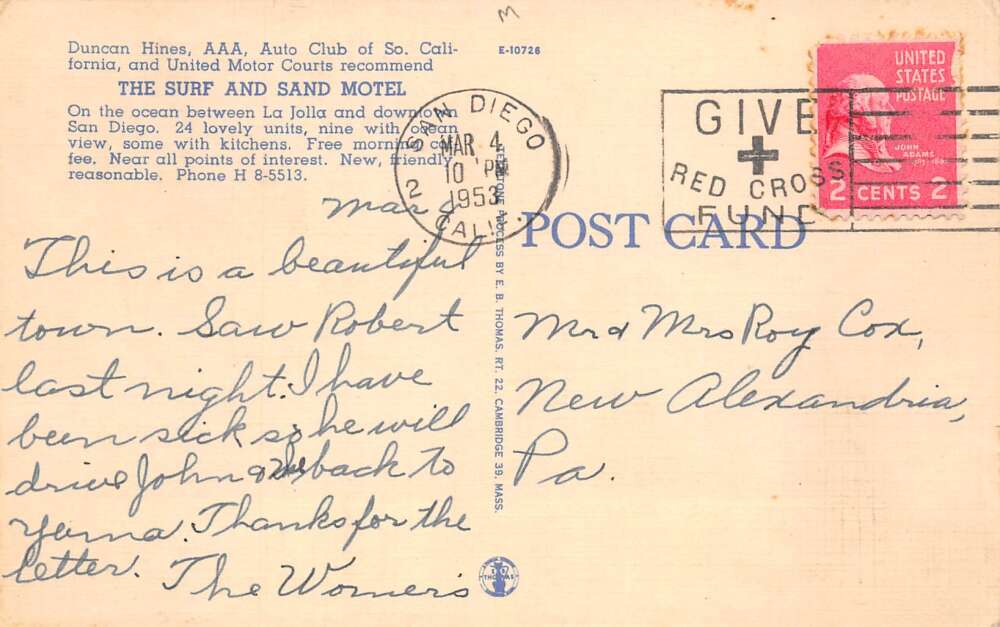 Duncan Hines, AAA, Auto Club of So. Cali-
fornia, and United Motor Courts recommend
THE SURF AND SAND MOTEL
On the ocean between La Jolla and downtown
San Diego. 24 lovely units, nine with ocean
view, some with kitchens. Free morning cof-
fee. Near all points of interest. New, friendly
reasonable. Phone H 8-5513.
E-10726
3
SAN DIEGO
MAR 4
10 PM
1953
2
CALIF.
GIVE
RED CROSS
FUND
UNITED
STATES
POSTAGE
JOHN
ADAMS
2 CENTS 2
POST CARD
Mar
This is a beautiful
town. Saw Robert
last night. I have
been sick so he will
drive John & back to
Yerma. Thanks for the
letter. The Womers
PROCESS BY E. B. THOMAS, RT. 22, CAMBRIDGE 39, MASS.
THOMAS
Mr & Mrs Roy Cox,
New Alexandria,
Pa.